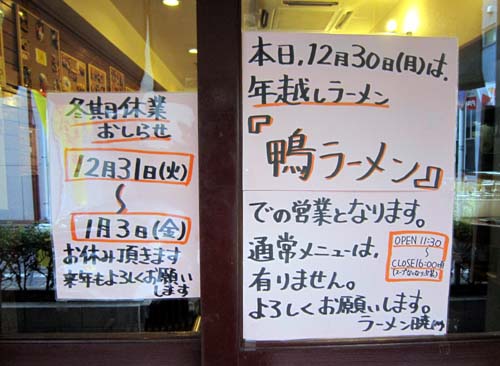 冬期休業
おしらせ
12月31日(火)
〜
1月3日(金)
お休み頂きます
来年もよろしくお願い
します
本日,12月30日(月)は、
年越しラーメン
『鴨ラーメン』
での営業となります。
通常メニューは、
有りません。
よろしくお願いします。
ラーメン暁
OPEN 11:30
〜
CLOSE 16:00